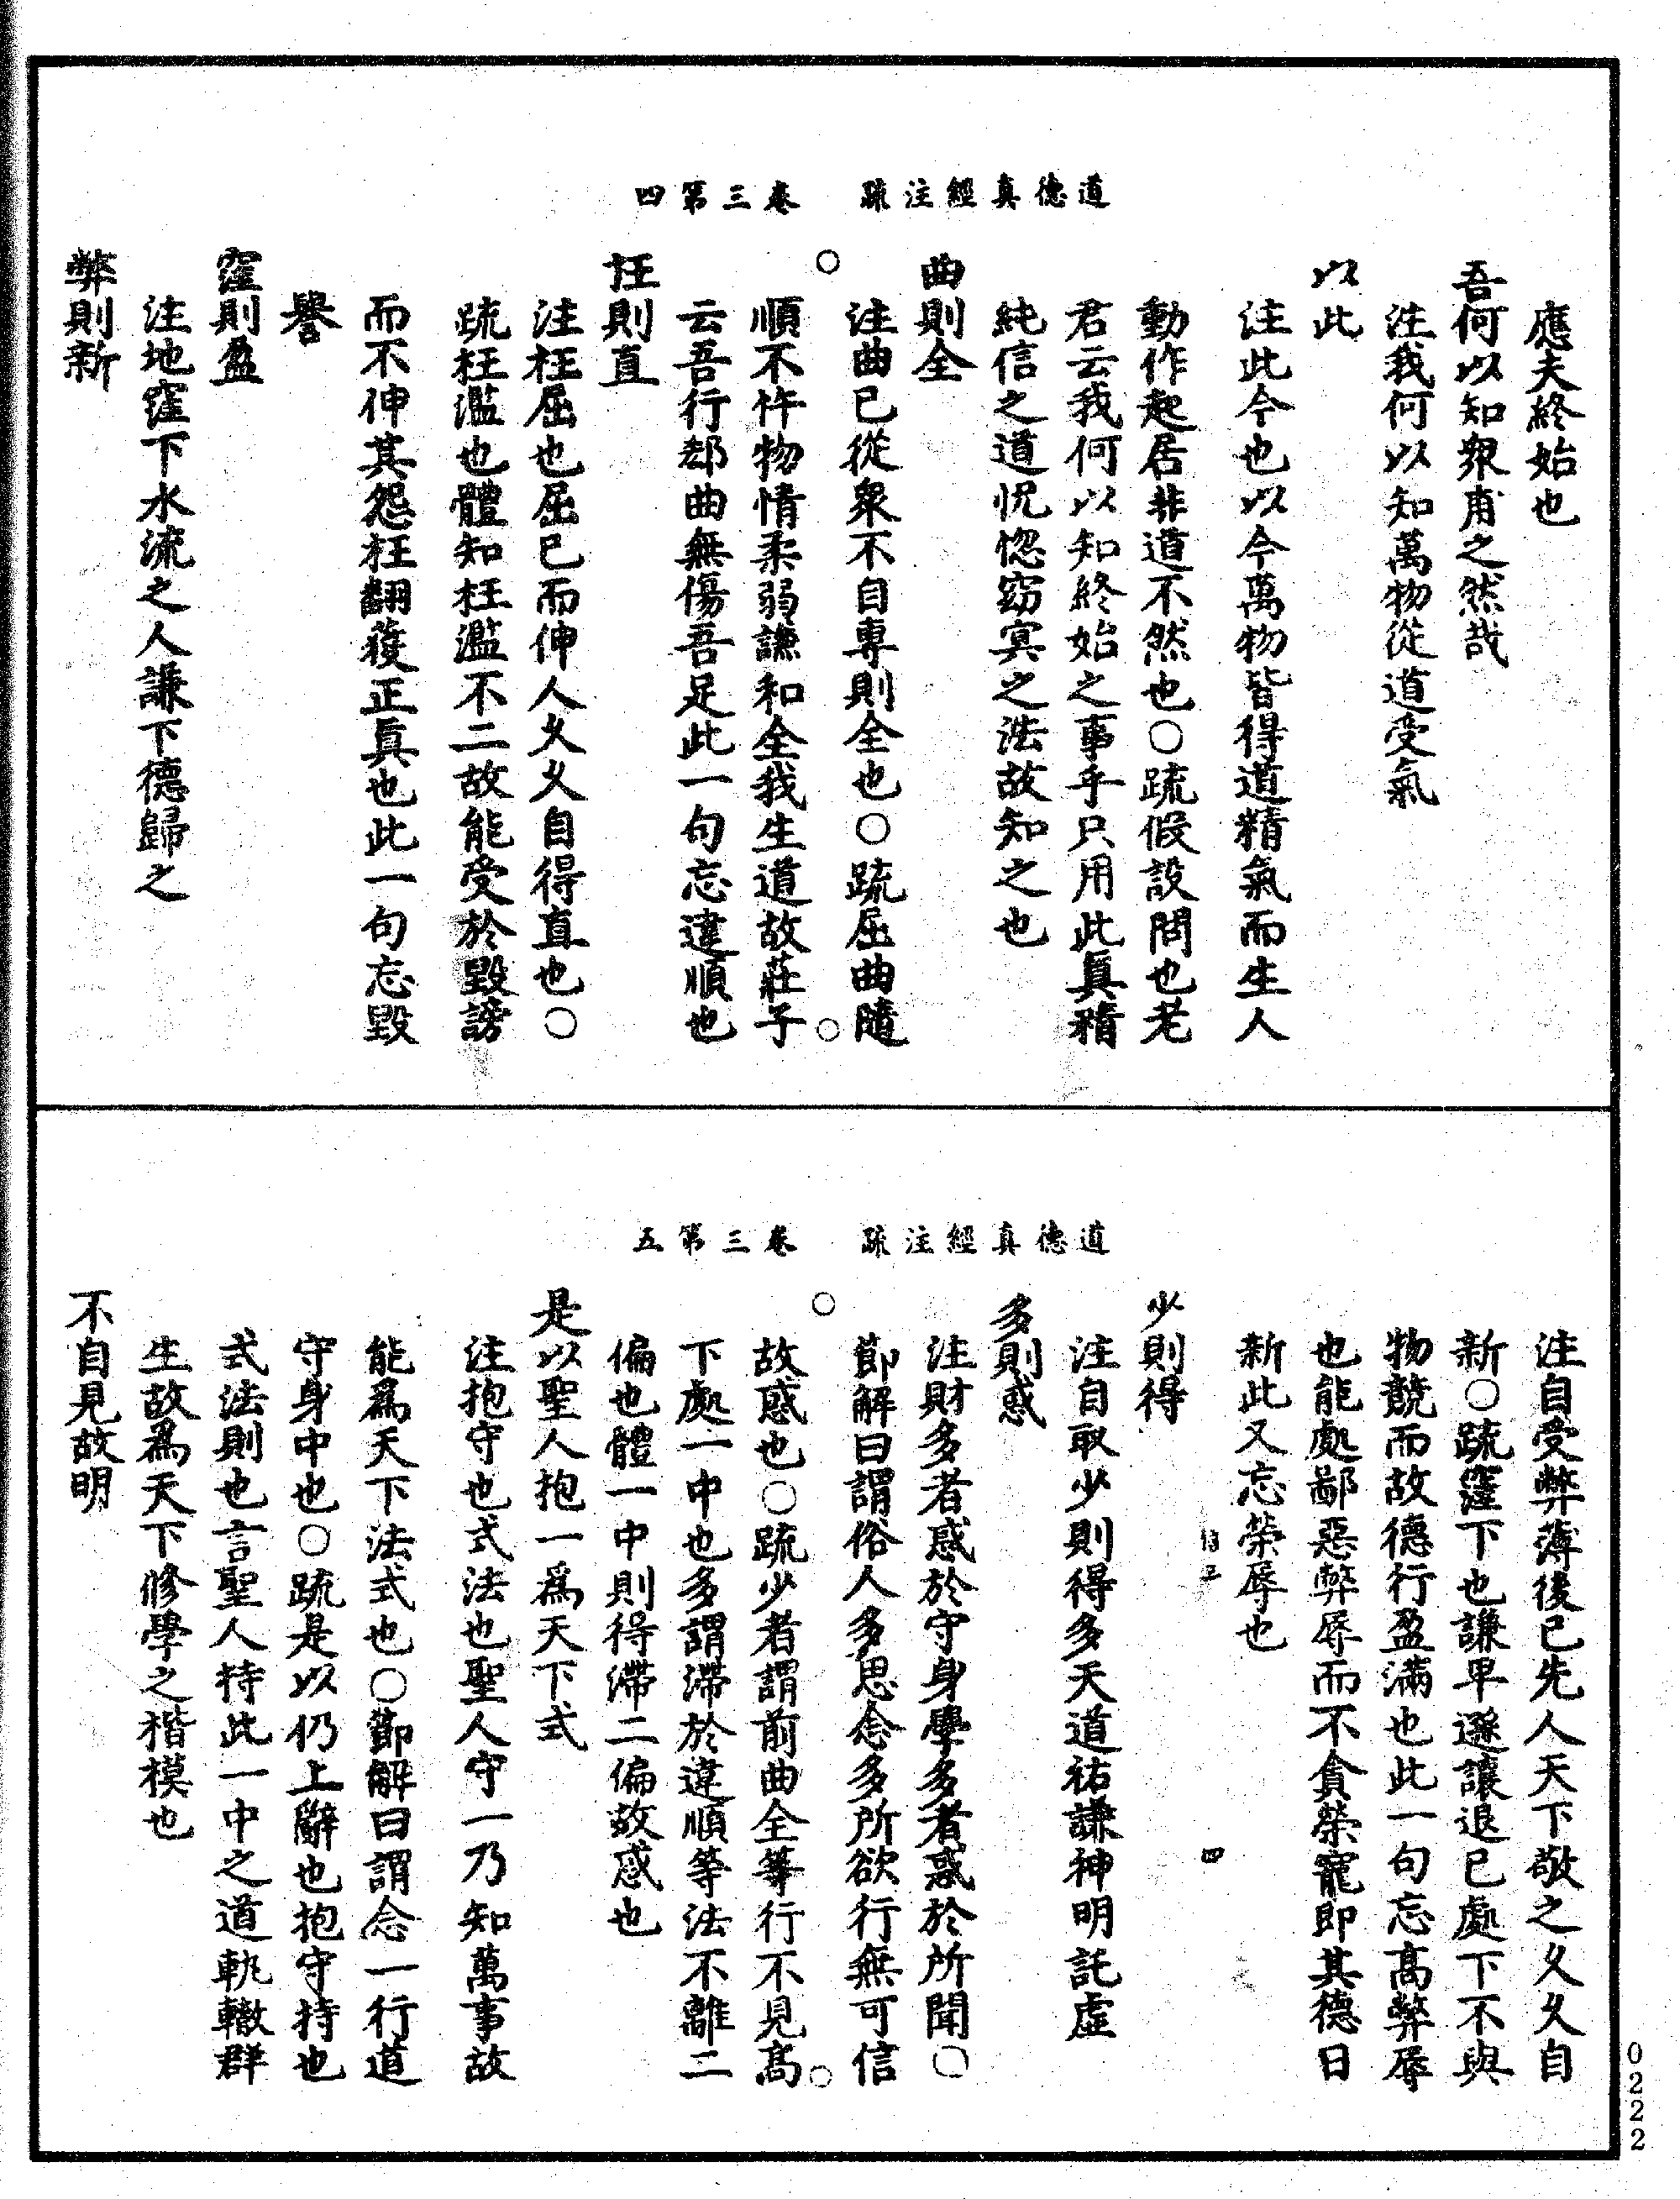 道德真經注疏　卷三第四
應夫終始也
吾何以知衆甫之然哉
注我何以知萬物從道受氣
以此
注此今也以今萬物皆得道精氣而生人
動作起居非道不然也○疏假設問也老
君云我何以知終始之事乎只用此真精
純信之道怳惚窈冥之法故知之也
曲則全
注曲已從衆不自專則全也○疏屈曲隨
順不忤物情柔弱謙和全我生道故莊子
云吾行郄曲無傷吾足此一句忘違順也
枉則直
注枉屈也屈已而伸人久久自得直也○
疏枉濫也體知枉濫不二故能受於毀謗
而不伸其怨枉翻獲正真也此一句忘毀
譽
窪則盈
注地窪下水流之人謙下德歸之
弊則新
道德真經注疏　卷三第五
注自受弊薄後已先人天下敬之久久自
新○疏窪下也謙卑遜讓退已處下不與
物競而故德行盈滿也此一句忘高弊辱
也能處鄙惡弊辱而不貪榮寵即其德日
新此又忘榮辱也
四
少則得
注自取少則得多天道祐謙神明託虛
多則惑
注財多者惑於守身學多者惑於所聞○
節解曰謂俗人多思念多所欲行無可信
故惑也○疏少者謂前曲全等行不見高
下處一中也多謂滯於違順等法不離二
偏也體一中則得滯二偏故惑也
是以聖人抱一爲天下式
注抱守也式法也聖人守一乃知萬事故
能爲天下法式也○節解曰謂念一行道
守身中也○疏是以仍上辭也抱守持也
式法則也言聖人持此一中之道軌轍群
生故爲天下修學之楷模也
不自見故明
0222